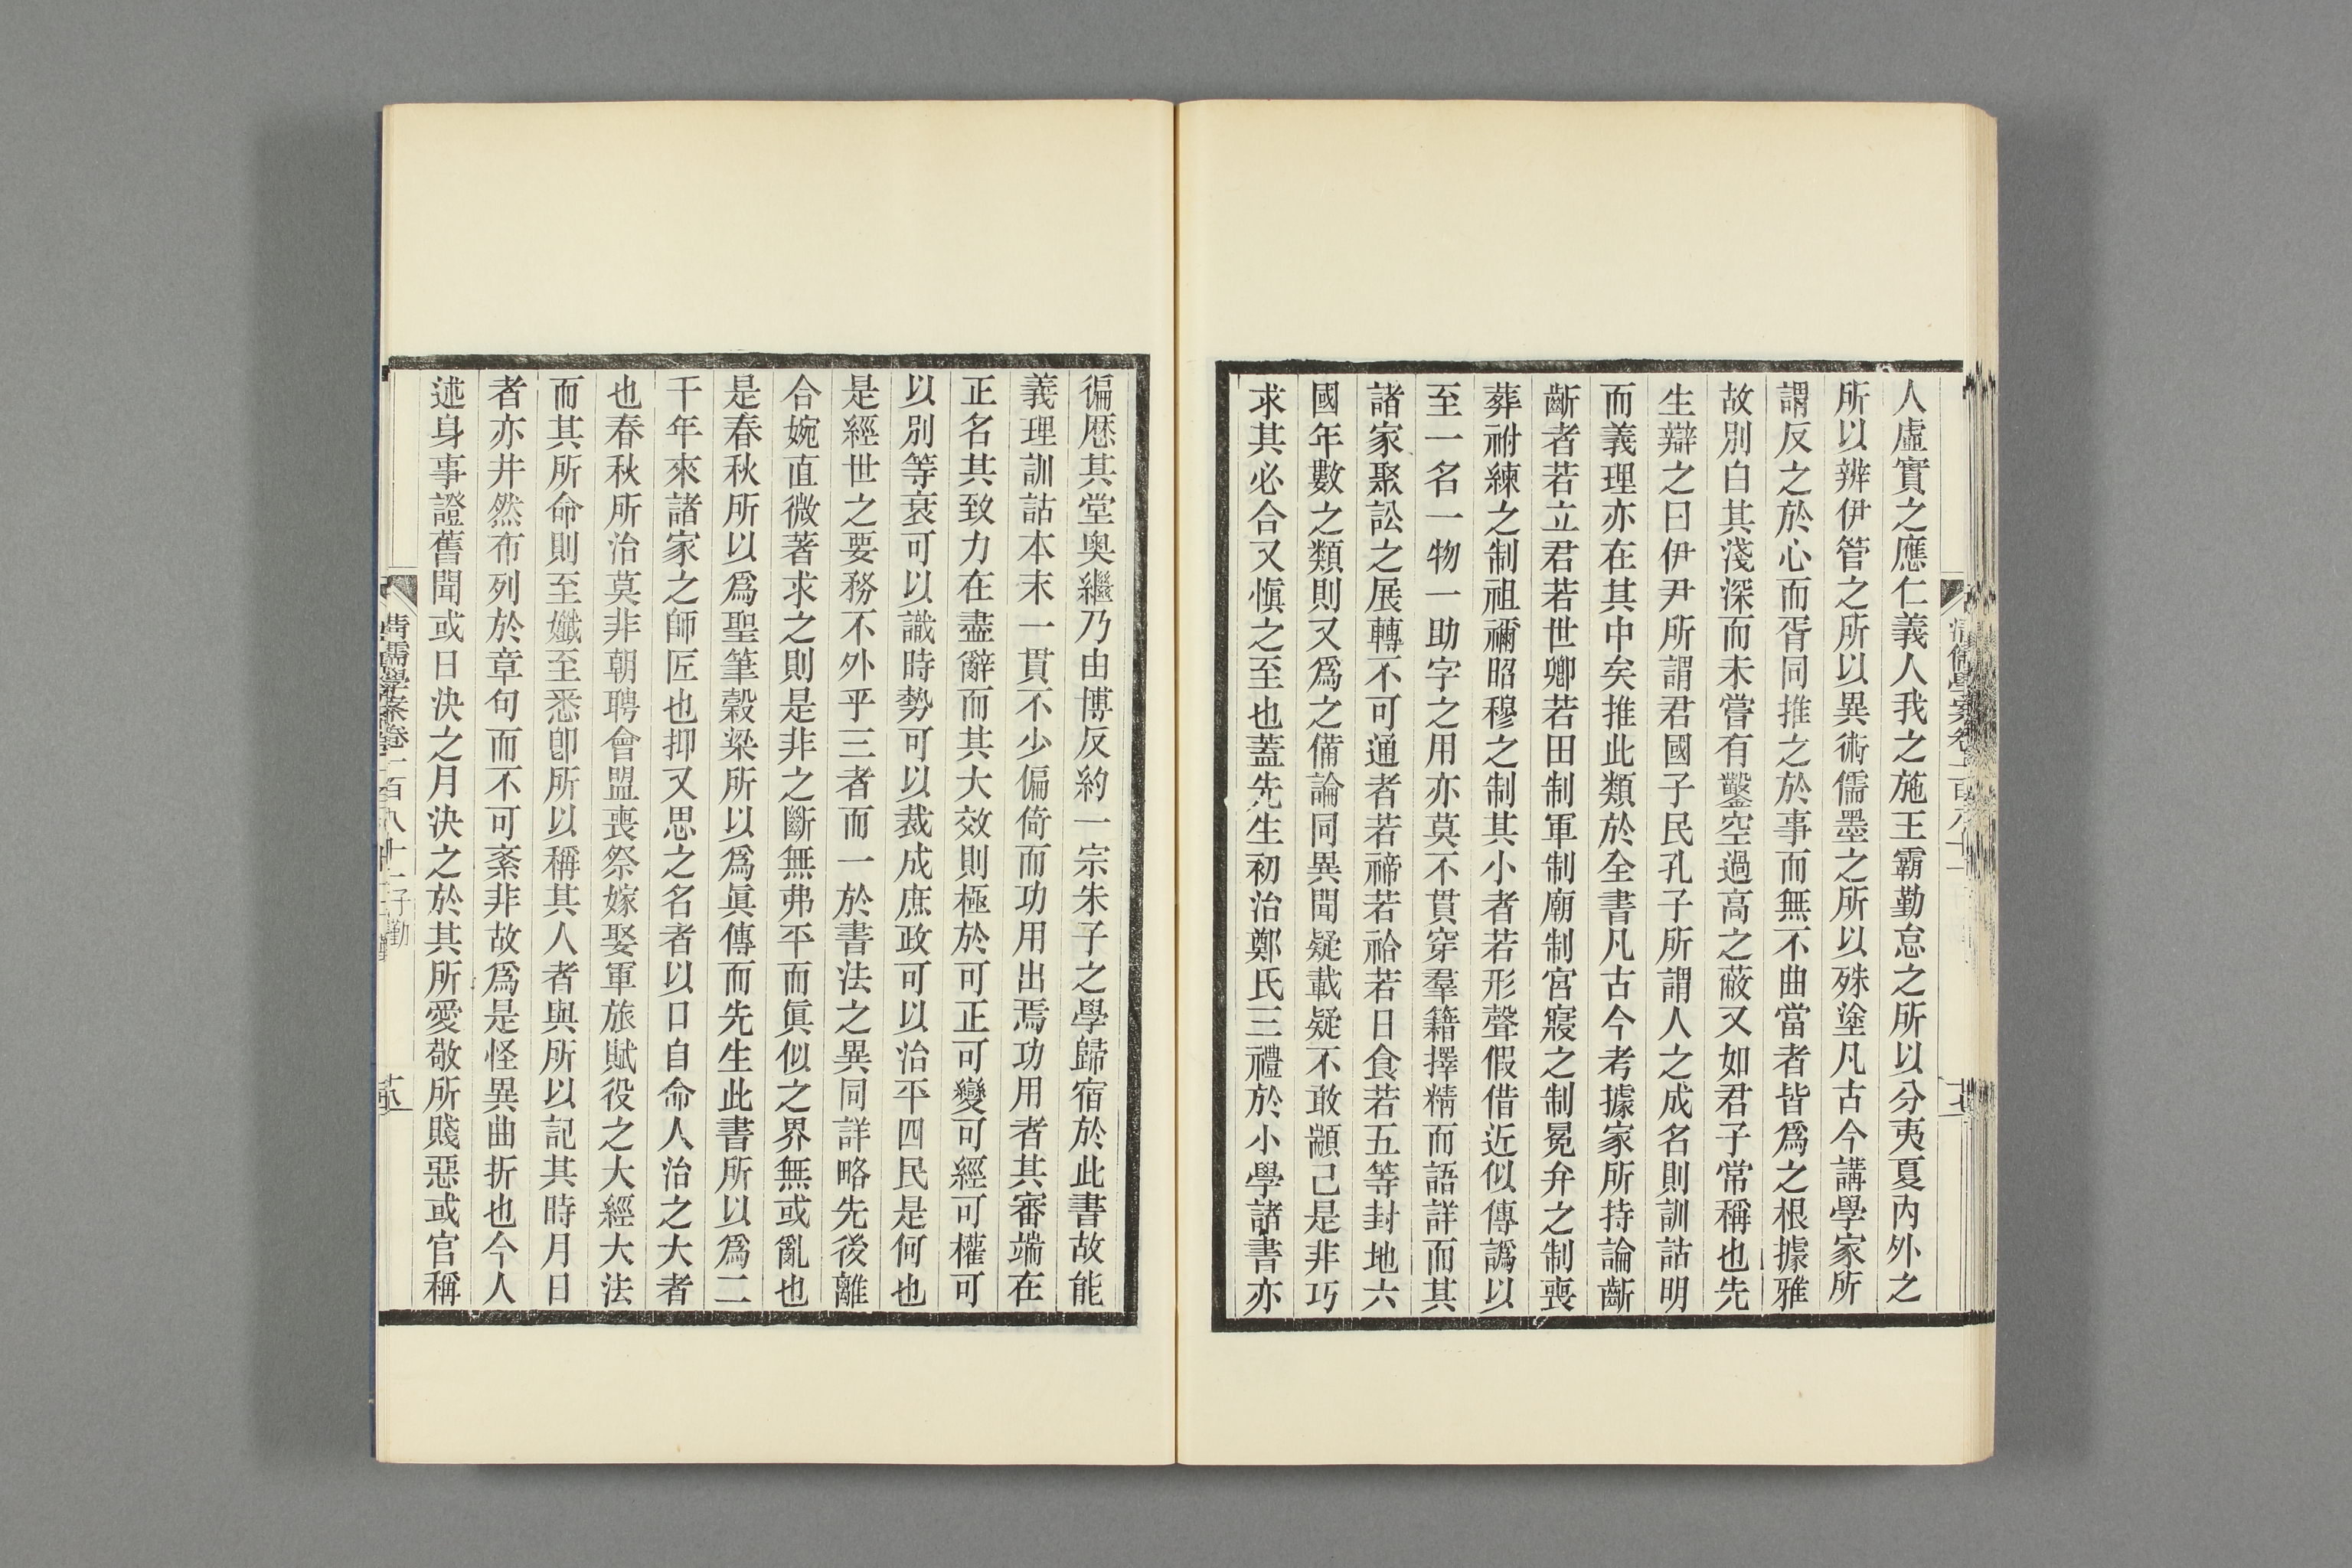 人虛實之應仁義人我之施王霸勤怠之所以分夷夏內外之
所以辨伊管之所以異術儒墨之所以殊塗凡古今講學家所
謂反之於心而胥同推之於事而無不曲當者皆爲之根據雅
故別白其淺深而未嘗有鑿空過高之蔽又如君子常稱也先
生辯之曰伊尹所謂君國子民孔子所謂人之成名則訓詁明
而義理亦在其中矣推此類於全書凡古今考據家所持論齗
齗者若立君若世卿若田制軍制廟制宮寢之制冕弁之制喪
葬祔練之制祖禰昭穆之制其小者若形聲假借近似傳譌以
至一名一物一助字之用亦莫不貫穿羣籍擇精而語詳而其
諸家聚訟之展轉不可通者若禘若祫若日食若五等封地六
國年數之類則又爲之備論同異聞疑載疑不敢顓己是非巧
求其必合又愼之至也蓋先生初治鄭氏三禮於小學諸書亦
徧歷其堂奧繼乃由博反約一宗朱子之學歸宿於此書故能
義理訓詁本末一貫不少偏倚而功用出焉功用者其審端在
正名其致力在盡辭而其大效則極於可正可變可經可權可
以別等衰可以識時勢可以裁成庶政可以治平四民是何也
是經世之要務不外乎三者而一於書法之異同詳略先後離
合婉直微著求之則是非之斷無弗平而眞似之界無或亂也
是春秋所以爲聖筆穀梁所以爲眞傳而先生此書所以爲二
千年來諸家之師匠也抑又思之名者以口自命人治之大者
也春秋所治莫非朝聘會盟喪祭嫁娶軍旅賦役之大經大法
而其所命則至孅至悉卽所以稱其人者與所以記其時月日
者亦井然布列於章句而不可紊非故爲是怪異曲折也今人
述身事證舊聞或日決之月決之於其所愛敬所賤惡或官稱
清儒學案卷一百八十二 子勤